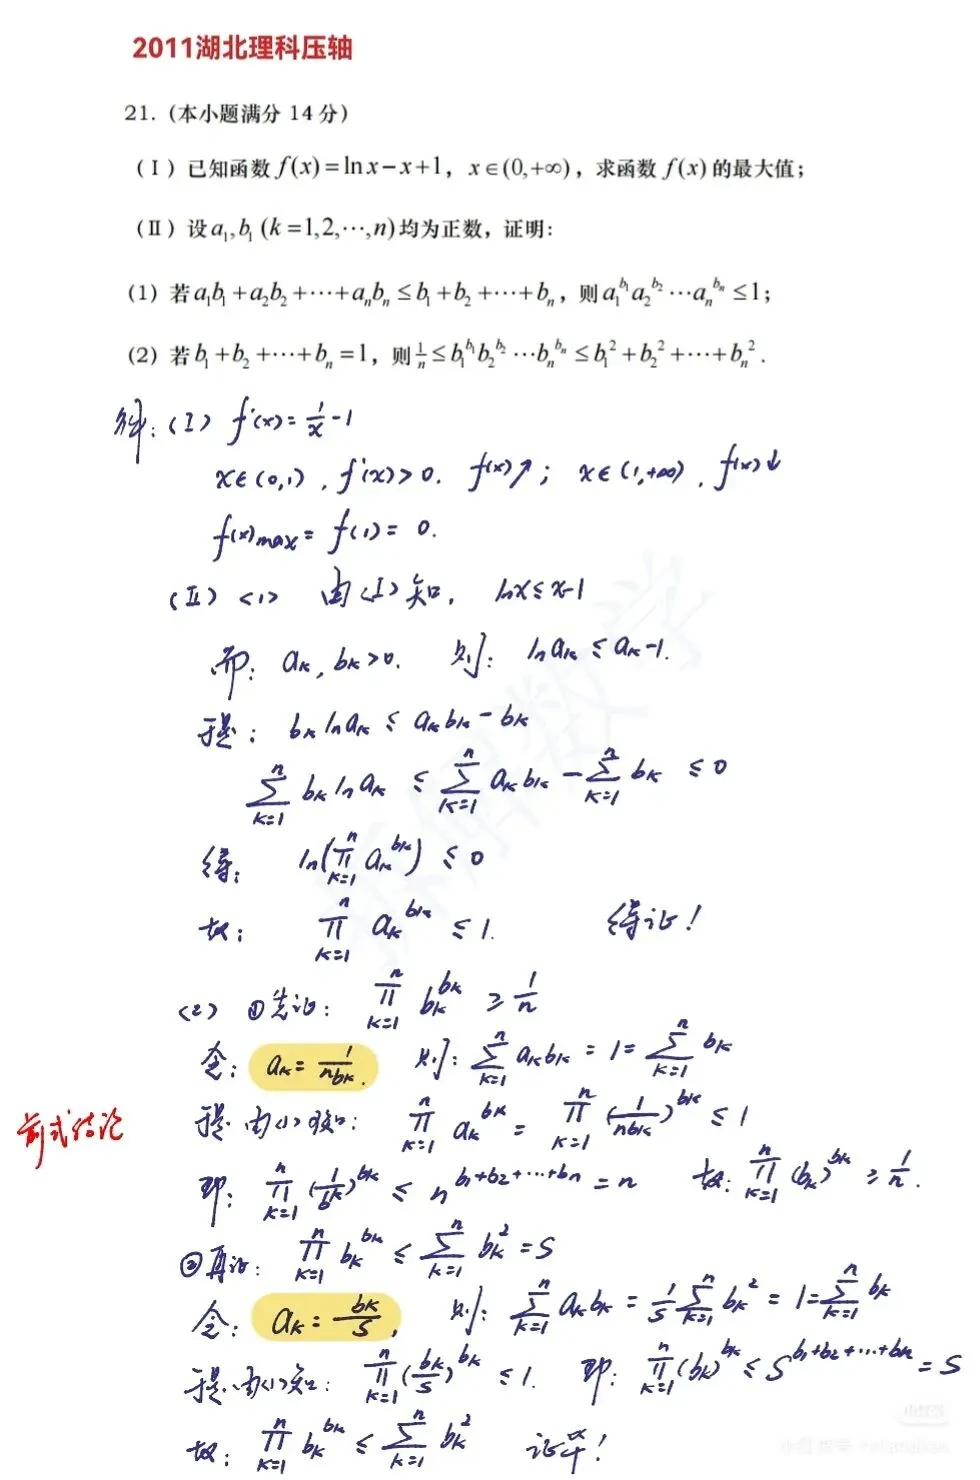 2011湖北理科压轴
21. (本小题满分 14 分)
(Ⅰ) 已知函数 f(x)=ln x−x+1, x∈(0,+∞), 求函数 f(x) 的最大值;
(Ⅱ) 设 a₁,b₁ (k=1,2,⋯,n)均为正数, 证明:
(1) 若 a₁b₁+a₂b₂+⋯+aₙbₙ≤b₁+b₂+⋯+bₙ, 则 a₁^{b₁}a₂^{b₂}⋯aₙ^{bₙ}≤1;
(2) 若 b₁+b₂+⋯+bₙ=1, 则 1/n≤b₁^{b₁}b₂^{b₂}⋯bₙ^{bₙ}≤b₁²+b₂²+⋯+bₙ².
解: (Ⅰ) f'(x)=1/x−1
x∈(0,1), f'(x)>0. f(x)↗; x∈(1,+∞), f(x)↓
f(x)max=f(1)=0.
(Ⅱ) <1> 由(Ⅰ)知, lnx≤x-1
而: aₖ, bₖ>0. 则: lnaₖ≤aₖ-1.
于是: bₖlnaₖ≤aₖbₖ-bₖ
∑_{k=1}^{n} bₖlnaₖ ≤ ∑_{k=1}^{n} aₖbₖ - ∑_{k=1}^{n} bₖ ≤0
得: ln(∏_{k=1}^{n} aₖ^{bₖ}) ≤0
故: ∏_{k=1}^{n} aₖ^{bₖ} ≤1. 得证!
<2> ①先证: ∏_{k=1}^{n} bₖ^{bₖ} ≥ 1/n
令: aₖ=1/(nbₖ). 则: ∑_{k=1}^{n} aₖbₖ=1=∑_{k=1}^{n} bₖ
前式结论
于是由<1>知: ∏_{k=1}^{n} aₖ^{bₖ} = ∏_{k=1}^{n} (1/(nbₖ))^{bₖ} ≤1
即: ∏_{k=1}^{n} (1/bₖ)^{bₖ} ≤ n^{b₁+b₂+⋯+bₙ}=n 故: ∏_{k=1}^{n} (bₖ)^{bₖ} ≥ 1/n.
②再证: ∏_{k=1}^{n} bₖ^{bₖ} ≤ ∑_{k=1}^{n} bₖ²=S
令: aₖ=bₖ/S, 则: ∑_{k=1}^{n} aₖbₖ = 1/S ∑_{k=1}^{n} bₖ² = 1=∑_{k=1}^{n} bₖ
于是由<1>知: ∏_{k=1}^{n} (bₖ/S)^{bₖ} ≤1. 即: ∏_{k=1}^{n} (bₖ)^{bₖ} ≤ S^{b₁+b₂+⋯+bₙ}=S
故: ∏_{k=1}^{n} bₖ^{bₖ} ≤ ∑_{k=1}^{n} bₖ² 证毕!
拆解数学
小红书